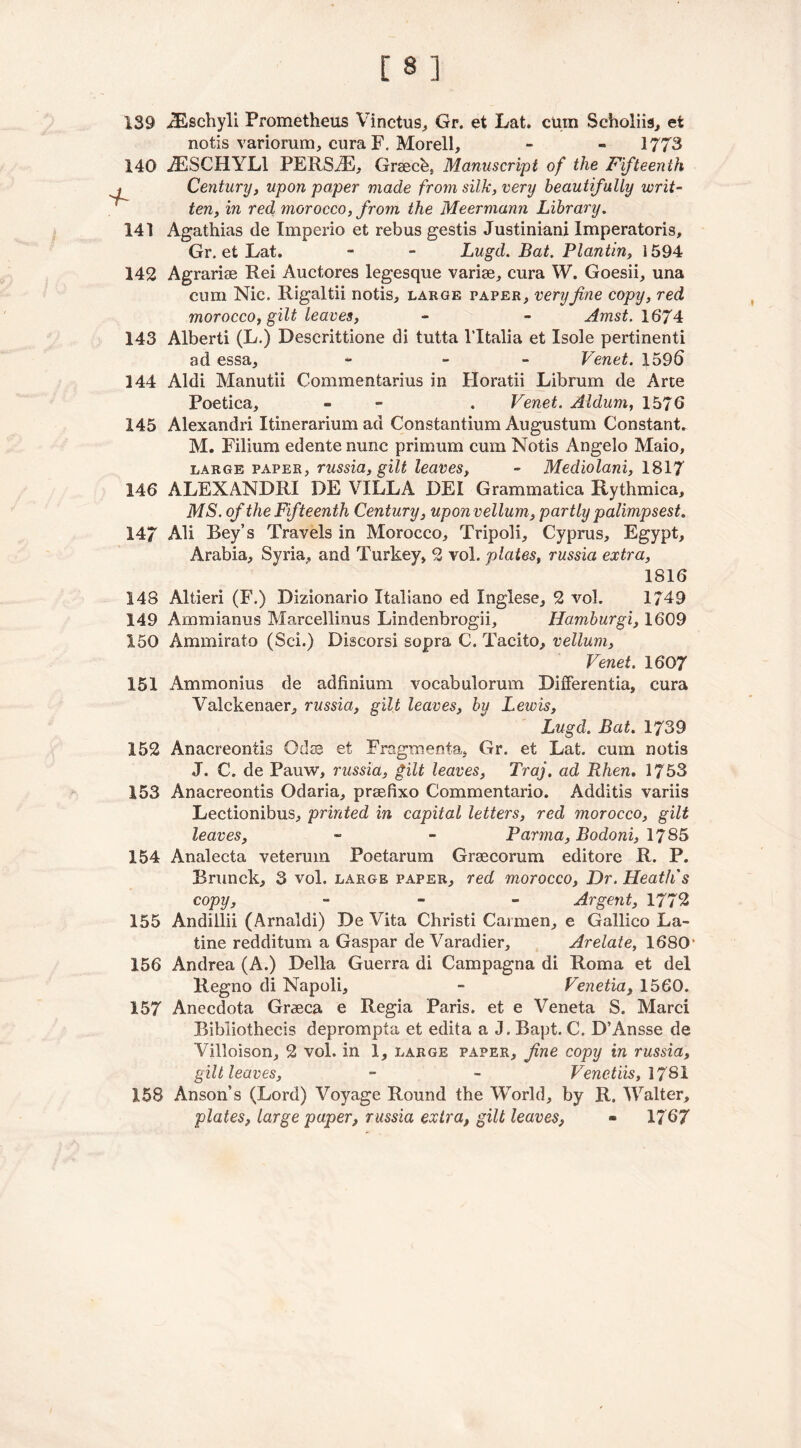 [ 8 ]
139 Æschyli Prometheus Vinctus, Gr. et Lat. cum Scholiis, et
notis variorum, cura F. Morell, - - 1773
140 ÆSCHYLI PERSÆ, Græcè, Manuscript of the Fifteenth
Century, upon paper made from silk, very beautifully writ-
ten, in red morocco, from the Meermann Library.
141 Agathias de Imperio et rebus gestis Justiniani Imperatoris,
Gr. et Lat. - - Lugd. Bat. Plantin, 1594
142 Agrariæ Rei Auctores legesque variæ, cura W. Goesii, una
cum Nic. Rigaltii notis, LARGE PAPER, very fine copy, red
morocco, gilt leaves, - - Amst. 1674
143 Alberti (L.) Descrittione di tutta l'Italia et Isole pertinenti
ad essa, - - - Venet. 1596
144 Aldi Manutii Commentarius in Horatii Librum de Arte
Poetica, - - . Venet. Aldum, 1576
145 Alexandri Itinerarium ad Constantium Augustum Constant.
M. Filium edente nunc primum cum Notis Angelo Maio,
LARGE PAPER, russia, gilt leaves, - Mediolani, 1817
146 ALEXANDRI DE VILLA DEI Grammatica Rythmica,
MS. of the Fifteenth Century, upon vellum, partly palimpsest.
147 Ali Bey's Travels in Morocco, Tripoli, Cyprus, Egypt,
Arabia, Syria, and Turkey, 2 vol. plates, russia extra,
1816
148 Altieri (F.) Dizionario Italiano ed Inglese, 2 vol. 1749
149 Ammianus Marcellinus Lindenbrogii, Hamburgi, 1609
150 Ammirato (Sci.) Discorsi sopra C. Tacito, vellum,
Venet. 1607
151 Ammonius de adfinium vocabulorum Differentia, cura
Valckenaer, russia, gilt leaves, by Lewis,
Lugd. Bat. 1739
152 Anacreontis Odæ et Fragmenta, Gr. et Lat. cum notis
J. C. de Pauw, russia, gilt leaves, Traj. ad Rhen. 1753
153 Anacreontis Odaria, præfixo Commentario. Additis variis
Lectionibus, printed in capital letters, red morocco, gilt
leaves, - - Parma, Bodoni, 1785
154 Analecta veterum Poetarum Græcorum editore R. P.
Brunck, 3 vol. LARGE PAPER, red morocco, Dr. Heath's
copy, - - - Argent, 1772
155 Andillii (Arnaldi) De Vita Christi Carmen, e Gallico La-
tine redditum a Gaspar de Varadier, Arelate, 1680
156 Andrea (A.) Della Guerra di Campagna di Roma et del
Regno di Napoli, - Venetia, 1560.
157 Anecdota Græca e Regia Paris. et e Veneta S. Marci
Bibliothecis deprompta et edita a J. Bapt. C. D'Ansse de
Villoison, 2 vol. in 1, LARGE PAPER, fine copy in russia,
gilt leaves, - - Venetiis, 1781
158 Anson's (Lord) Voyage Round the World, by R. Walter,
plates, large paper, russia extra, gilt leaves, - 1767